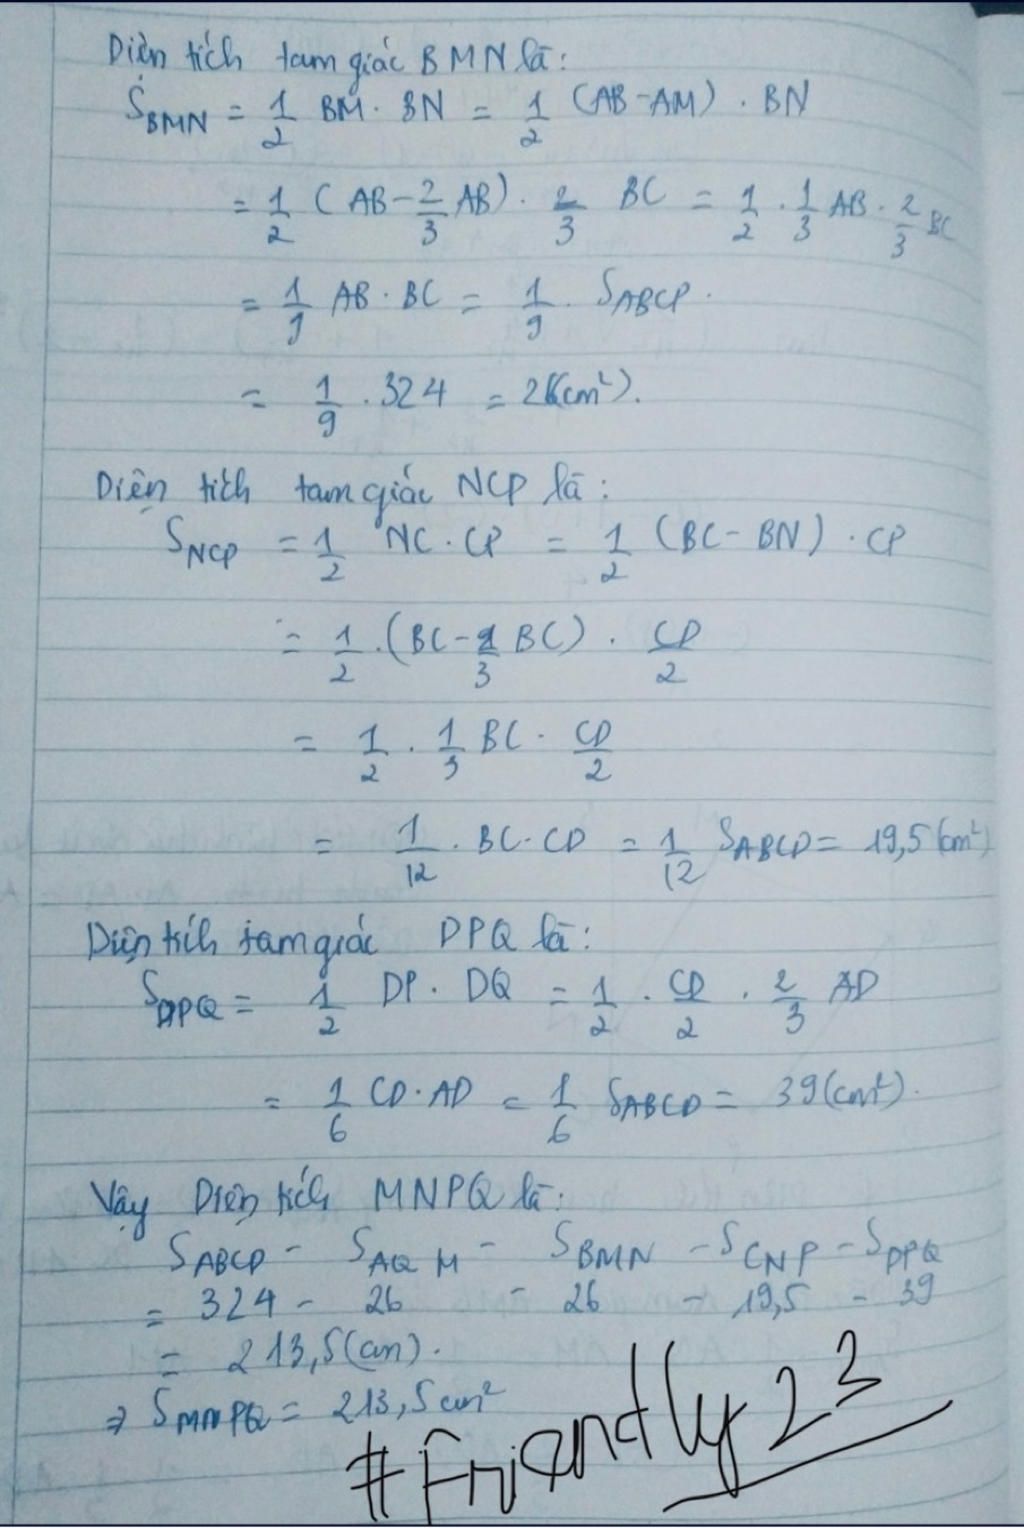 Diện tích tam giác BMN là:
S_BMN = 1/2 BM . BN = 1/2 (AB - AM) . BN
= 1/2 (AB - 2/3 AB) . 2/3 BC = 1/2 . 1/3 AB . 2/3 BC
= 1/9 AB . BC = 1/9 . S_ABCD.
= 1/9 . 324 = 26(cm²).
Diện tích tam giác NCP là:
S_NCP = 1/2 NC . CP = 1/2 (BC - BN) . CP
= 1/2 . (BC - 2/3 BC) . CD/2
= 1/2 . 1/3 BC . CD/2
= 1/12 . BC . CD = 1/12 S_ABCD = 19,5 (cm²)
Diện tích tam giác DPQ là:
S_DPQ = 1/2 DP . DQ = 1/2 . CD/2 . 2/3 AD
= 1/6 CD . AD = 1/6 S_ABCD = 39(cm²).
Vậy Diện tích MNPQ là:
S_ABCD - S_AQM - S_BMN - S_CNP - S_DPQ
= 324 - 26 - 26 - 19,5 - 39
= 213,5(cm).
⇒ S_MNPQ = 213,5cm²
#Friendly23